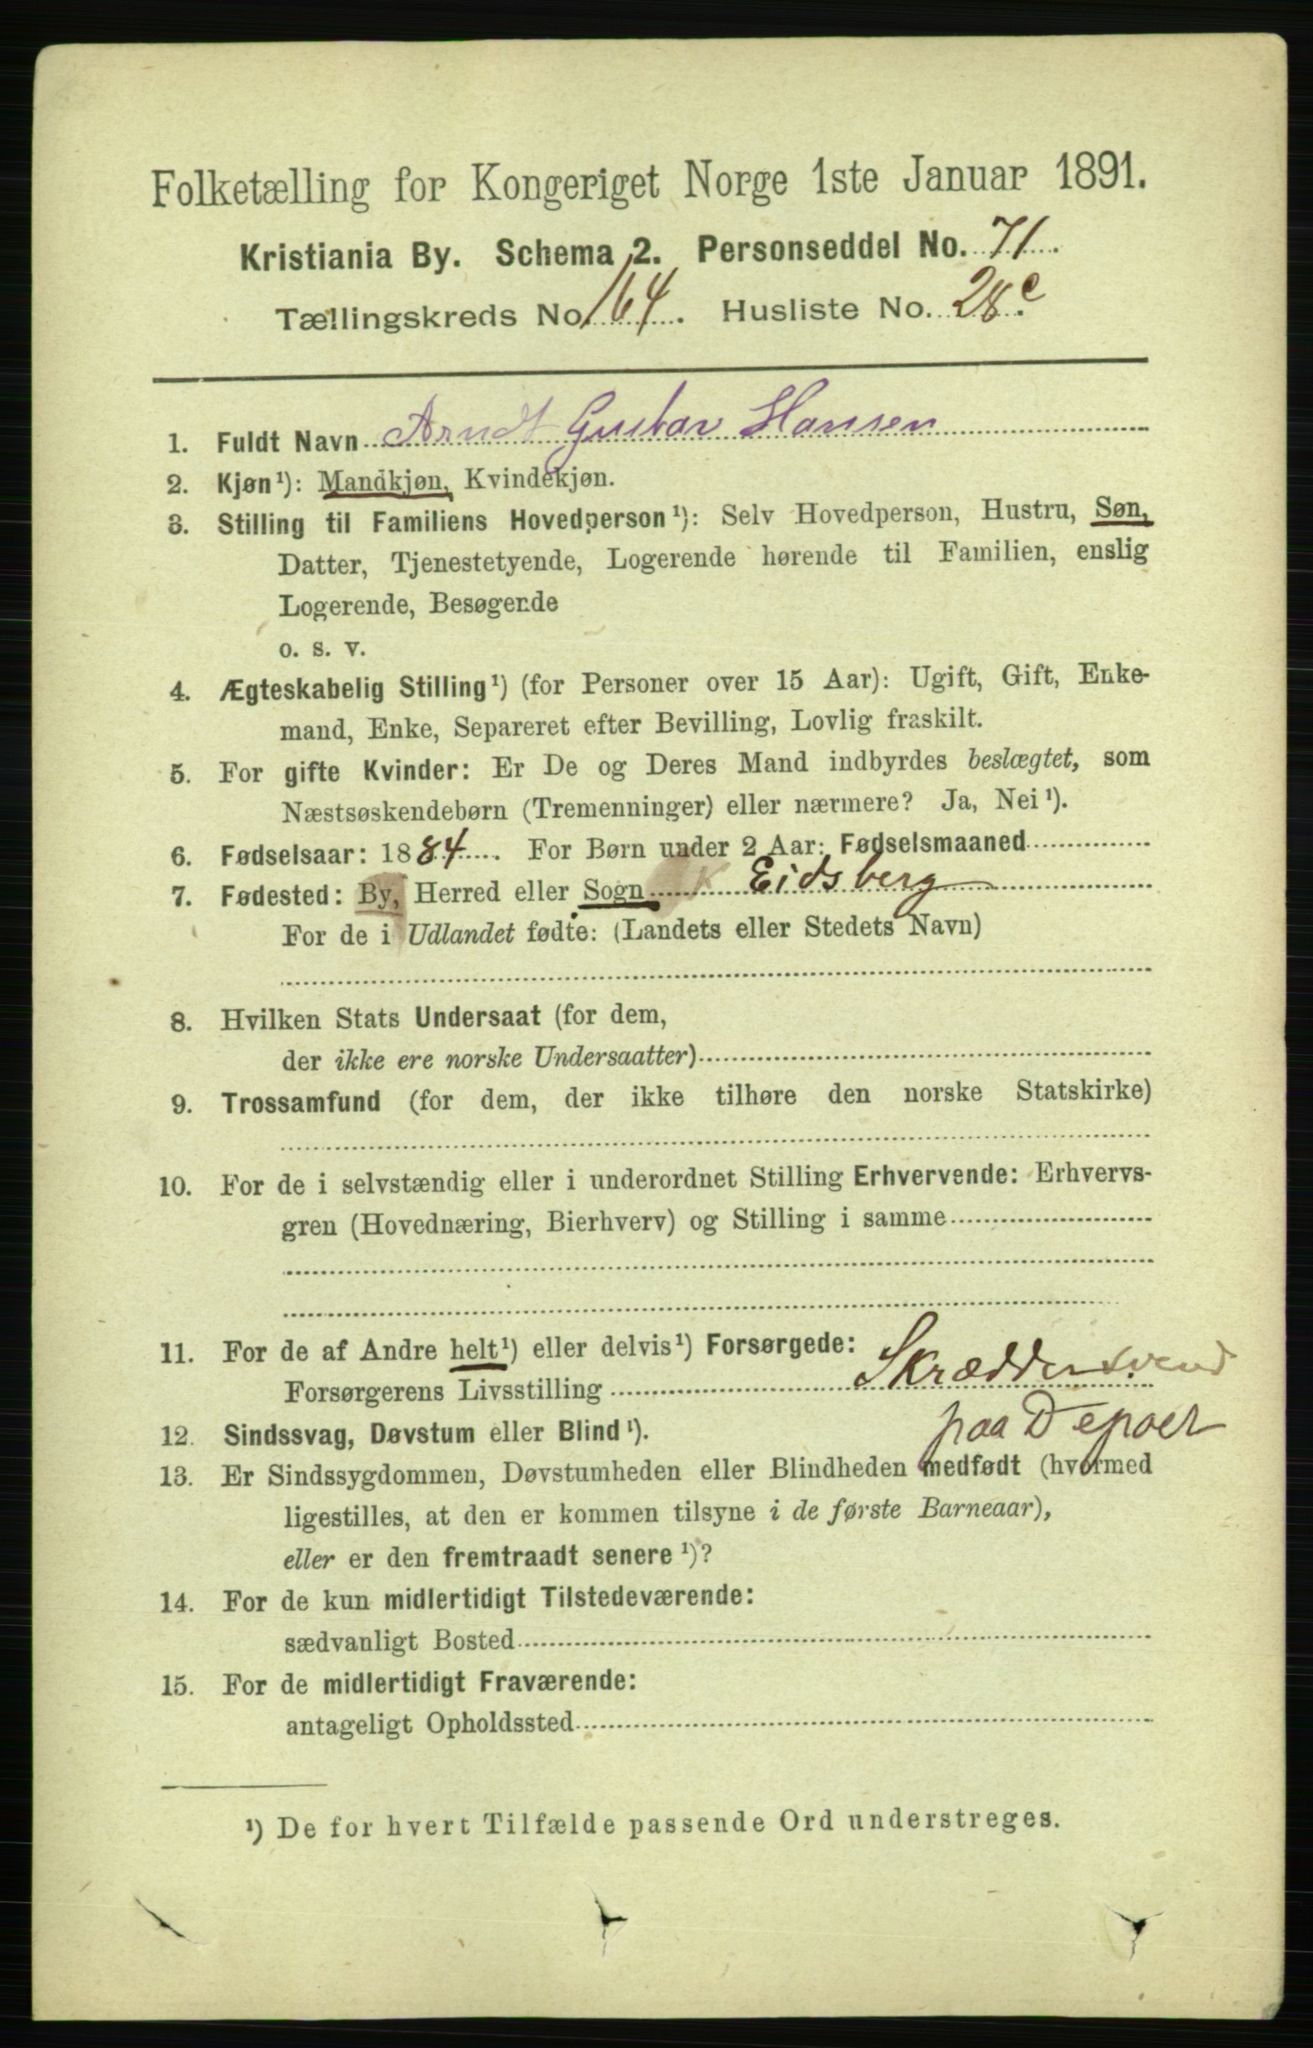 Folketælling for Kongeriget Norge 1ste Januar 1891.
Kristiania By. Schema 2. Personseddel No. 71.
Tællingskreds No. 164. Husliste No. 28c.
1. Fuldt Navn Arndt Gustav Hansen
2. Kjøn¹): Mandkjøn, Kvindekjøn.
3. Stilling til Familiens Hovedperson¹): Selv Hovedperson, Hustru, Søn,
Datter, Tjenestetyende, Logerende hørende til Familien, enslig
Logerende, Besøgende
o. s. v.
4. Ægteskabelig Stilling¹) (for Personer over 15 Aar): Ugift, Gift, Enke-
mand, Enke, Separeret efter Bevilling, Lovlig fraskilt.
5. For gifte Kvinder: Er De og Deres Mand indbyrdes beslægtet, som
Næstsøskendebørn (Tremenninger) eller nærmere? Ja, Nei¹).
6. Fødselsaar: 1884. For Børn under 2 Aar: Fødselsmaaned
7. Fødested: By, Herred eller Sogn Eidsberg
For de i Udlandet fødte: (Landets eller Stedets Navn)
8. Hvilken Stats Undersaat (for dem,
der ikke ere norske Undersaatter)
9. Trossamfund (for dem, der ikke tilhøre den norske Statskirke)
10. For de i selvstændig eller i underordnet Stilling Erhvervende: Erhvervs-
gren (Hovednæring, Bierhverv) og Stilling i samme
11. For de af Andre helt¹) eller delvis¹) Forsørgede:
Forsørgerens Livsstilling Skræddersvend
paa Depoet
12. Sindssvag, Døvstum eller Blind¹).
13. Er Sindssygdommen, Døvstumheden eller Blindheden medfødt (hvormed
ligestilles, at den er kommen tilsyne i de første Barneaar),
eller er den fremtraadt senere¹)?
14. For de kun midlertidigt Tilstedeværende:
sædvanligt Bosted
15. For de midlertidigt Fraværende:
antageligt Opholdssted
¹) De for hvert Tilfælde passende Ord understreges.